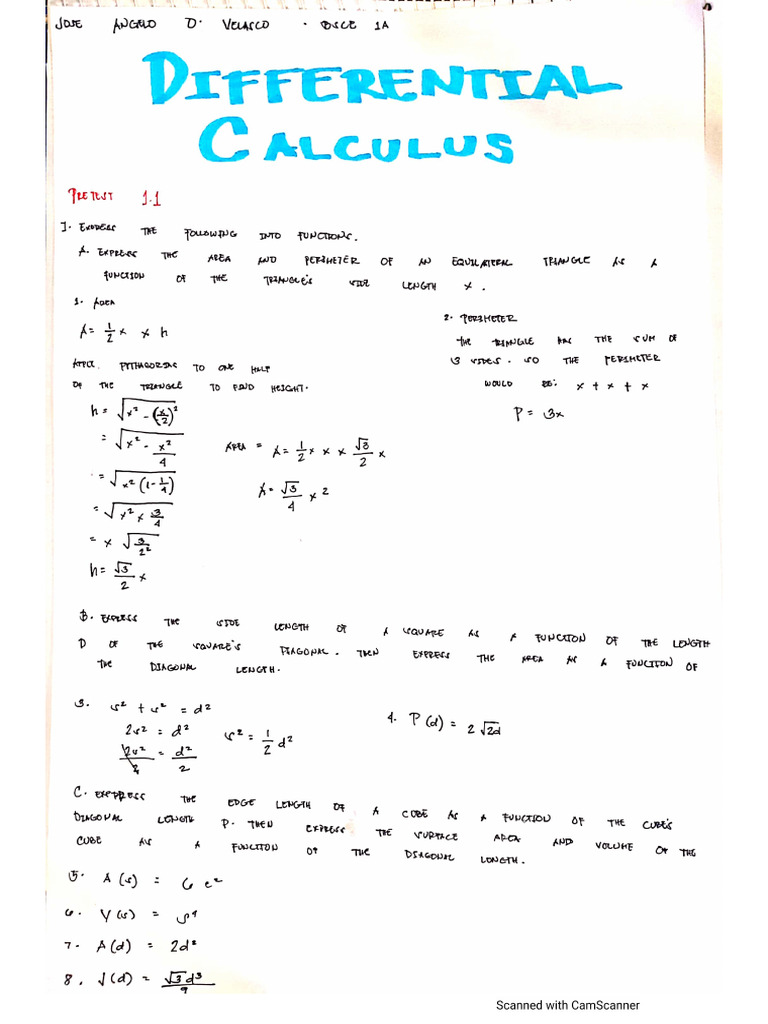 JOSE ANGELO D. VELASCO - BSCE 1A
DIFFERENTIAL
CALCULUS
PRETEST 1.1
I. EXPRESS THE FOLLOWING INTO FUNCTIONS.
A. EXPRESS THE AREA AND PERIMETER OF AN EQUILATERAL TRIANGLE AS A
FUNCTION OF THE TRIANGLE'S SIDE LENGTH X.
1. AREA
A = 1/2 x x h
APPLY PYTHAGOREAN TO ONE HALF
OF THE TRIANGLE TO FIND HEIGHT.
h = √x² - (x/2)²
= √x² - x²/4
= √x² (1 - 1/4)
= √x² x 3/4
= x √3/2²
h = √3/2 x
AREA = A = 1/2 x x x √3/2 x
A = √3/4 x²
2. PERIMETER
THE TRIANGLE HAS THE SUM OF
3 SIDES. SO THE PERIMETER
WOULD BE: x + x + x
P = 3x
B. EXPRESS THE SIDE LENGTH OF A SQUARE AS A FUNCTION OF THE LENGTH
D OF THE SQUARE'S DIAGONAL. THEN EXPRESS THE AREA AS A FUNCITON OF
THE DIAGONAL LENGTH.
3. s² + s² = d²
2s² = d²
2s²/2 = d²/2
s² = 1/2 d²
4. P(d) = 2√2d
C. EXPRESS THE EDGE LENGTH OF A CUBE AS A FUNCTION OF THE CUBE'S
DIAGONAL LENGTH P. THEN EXPRESS THE SURFACE AREA AND VOLUME OF THE
CUBE AS A FUNCITON OF THE DIAGONAL LENGTH.
5. A(s) = 6e²
6. V(s) =
7. A(d) = 2d²
8. V(d) = √3d³/9
Scanned with CamScanner